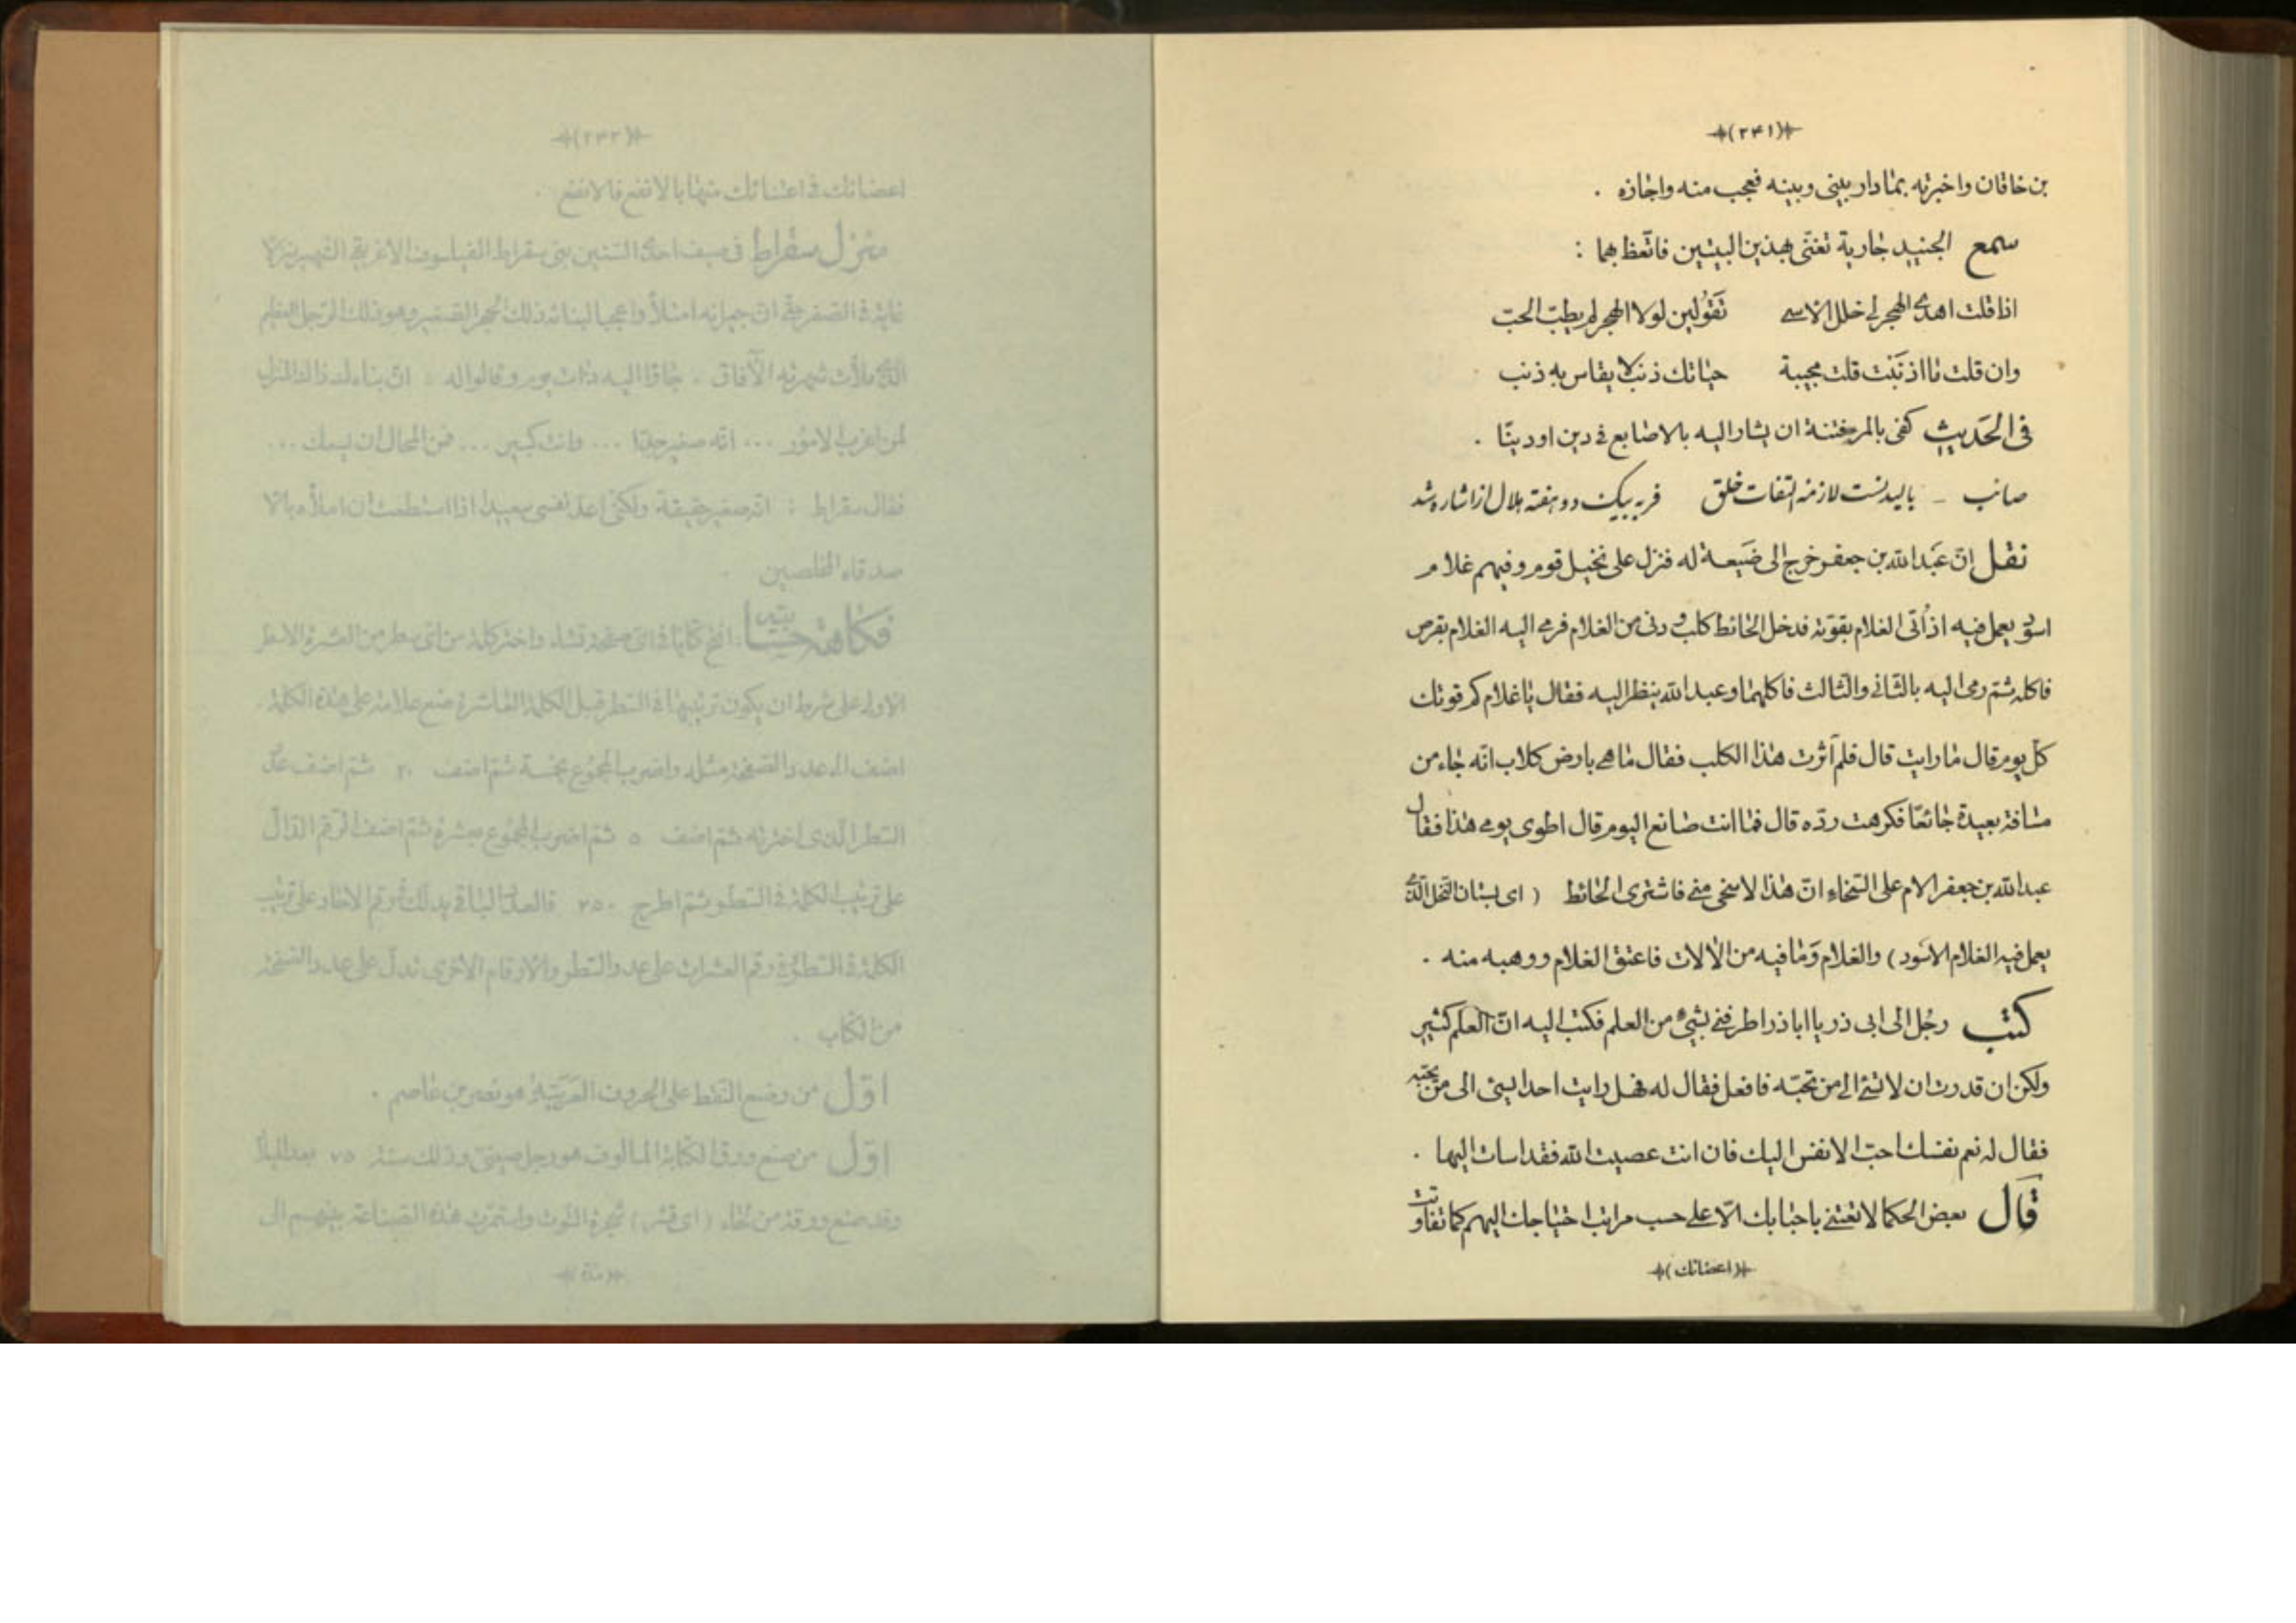 (۲۴۱)
بن خاقان واخبرته بما دار بينى وبينه فعجب منه واجازه .
سمع الجنيد جارية تغنّى بهذين البيتين فاتّعظ بهما :
اذا قلت اهدى الهجر لى حلل الاسى تَقوُلين لولا الهجر لم يطب الحبّ
وان قلت ما اذنَبْت قلت مجيبة حياتك ذنب لا يقاس به ذنب
فى الحَديث كفى بالمرء فتنة ان يشار اليه بالاصابع فى دين او دنيا .
صائب - باليدنست لازمه التفات خلق فربه بيك دو هفته هلال از اشاره شد
نقل انّ عَبد الله بن جعفر خرج الى ضَيعة له فنزل على نخيل قوم وفيهم غلام
اسود يعمل فيه اذ اُتى الغلام بقوته فدخل الحائط كلب ودنى من الغلام فرمى اليه الغلام بقرص
فاكله ثمّ رمى اليه بالثّانى والثالث فاكلهما وعبد الله ينظر اليه فقال يا غلام كم قوتك
كلّ يوم قال ما رايت قال فلم آثرت هذا الكلب فقال ما هى بارض كلاب انّه جاء من
مسافة بعيدة جائعًا فكرهت ردّه قال فما انت صانع اليوم قال اطوى يومى هذا فقال
عبد الله بن جعفر الام على السّخاء انّ هذا لاسخى منّى فاشترى الحائط ( اى بستان النّخل الّذى
يعمل فيه الغلام الاسود ) والغلام وَما فيه من الآلات فاعتق الغلام ووهبه منه .
كتب رجُل الى ابى ذر يا ابا ذر اطرفنى بشيء من العلم فكتب اليه انّ العلم كثير
ولكن ان قدرت ان لا تسئ الى من تحبّه فافعل فقال له فهل رايت احدا يسئ الى من يحبّه
فقال له نعم نفسك احبّ الانفس اليك فان انت عصيت الله فقد اسات اليها .
قال بعض الحكما لا تعتنى باحبابك الّا على حسب مراتب احتياجك اليهم كما تفاوتت
(اعضائك)
(۲۴۲)
اعضائك فى اعتنائك منها بالانفع فالانفع .
منزل سقراط فى صيف احدى السّنين بنى سقراط الفيلسوف الاغريقى الشّهير منزلا
غاية فى الصّغر حتّى انّ جيرانه امتلأوا عجبا لبنائه ذلك الحجر الصّغير وهو ذلك الرّجل العظيم
الّذى ملأت شهرته الآفاق . جاؤا اليه ذات يوم وقالوا له : انّ بناءك ذا المنزل
لمن اغرب الامور ... انّه صغير جدّا ... وانت كبير ... فمن المحال ان يسعك ...
فقال سقراط : انّه صغير حقيقة ولكنّى اعدّ نفسى سعيدا اذا استطعت ان املأه بالا
صدقاء المخلصين .
فكاهة حسابيّة : افتح كتابًا فى اىّ صفحة تشاء واختر كلمة من اىّ سطر من العشرة الاسطر
الاولى على شرط ان يكون ترتيبها فى السّطر قبل الكلمة العاشرة ضع علامة على هذه الكلمة .
اضف الى عدد الصّفحة مثله واضرب المجموع بخمسة ثمّ اضف ۲۰ ثمّ اضف عدد
السّطر الّذى اخترته ثمّ اضف ۵ ثمّ اضرب المجموع بعشرة ثمّ اضف الرّقم الدّال
على ترتيب الكلمة فى السّطر ثمّ اطرح ۲۵۰ فالعدد الباقى يدلّك رقم الآحاد على ترتيب
الكلمة فى السّطر ورقم العشرات على عدد السّطر والارقام الاخرى تدلّ على عدد الصّفحة
من الكتاب .
اوّل من وضع النّقط على الحروف العَرَبيّة هو نصر بن عاصم .
اوّل من صنع ورق الكتابة المألوف هو رجل صينىّ وذلك سنة ۷۵ بعد الميلاد
وقد صنع ورقة من لحاء ( اى قشر ) شجرة التّوت واستمرّت هذه الصّناعة بينهم الى